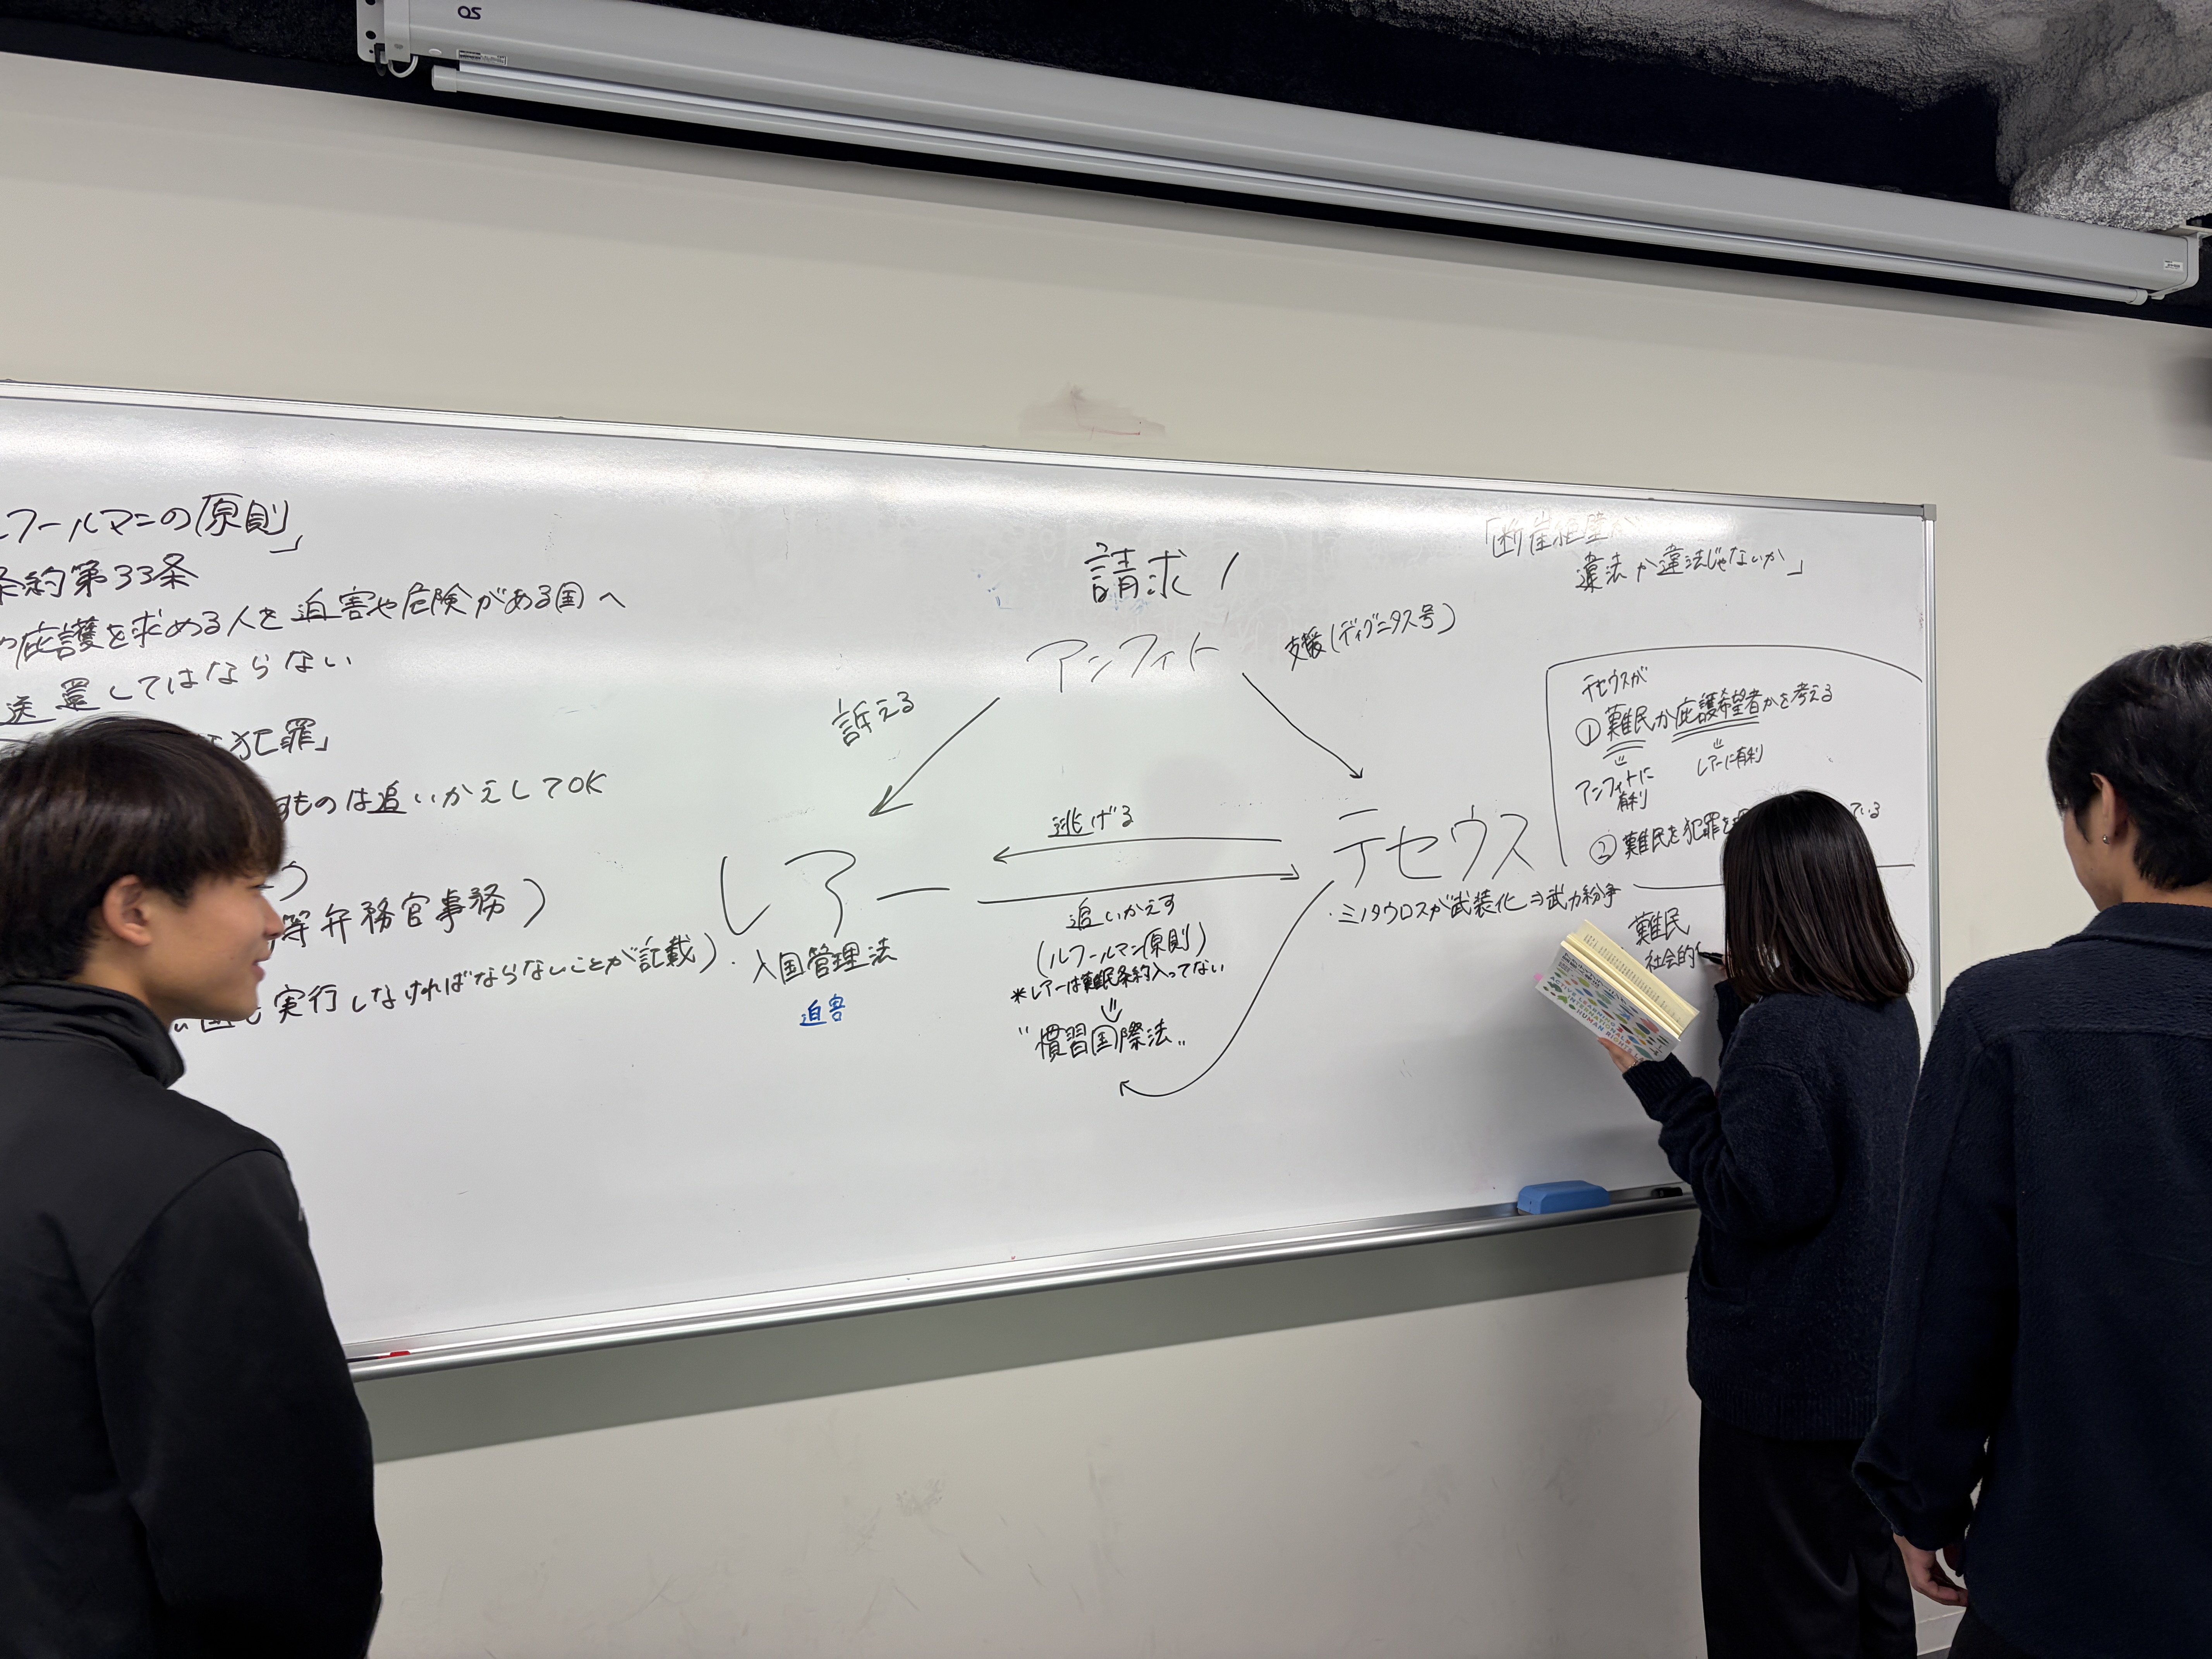 OS
ルフールマンの原則」
条約第33条
庇護を求める人を迫害や危険がある国へ
送還してはならない
犯罪」
ものは追いかえしてOK
等弁務官事務)
国も実行しなければならないことが記載)
請求1
アンフィト
支援(ディグニタス号)
訴える
レアー
・入国管理法
迫害
逃げる
追いかえす
(ルフールマン原則)
*レアーは難民条約入ってない
⇓
"慣習国際法"
テセウス
・ミノタウロスが武装化⇒武力紛争
「断崖絶壁が
違法か違法じゃないか」
テセウスが
①難民か庇護希望者かを考える
⇓
アンフィトに
有利
⇓
レアーに有利
②難民を犯罪を
ている
難民
社会的
ACTIVE LEARNING
INTERNATIONAL
HUMAN RIGHTS